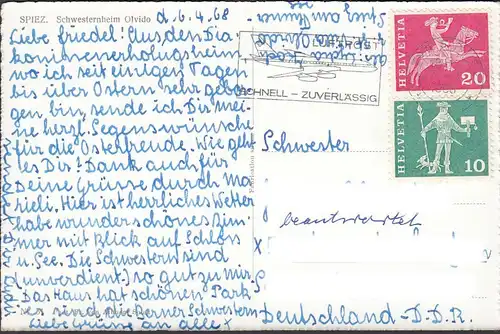 SPIEZ. Schwesternheim Olvido
d. 6. 4. 68
Liebe Friedel! Aus den Dia-
konissenerholungsheim
wo ich seit einigen Tagen
bis über Ostern sehr gebor-
gen bin, sende ich Dir mei-
ne herzl. Segenswünsche
für die Osterfreude. Wie geht
es Dir! Dank auch für
Deine Grüsse durch Ma-
rieli. Hier ist herrliches Wetter
habe wunderschönes Zim-
mer mit Blick auf Schloss
u See. Die Schwestern sind
(unverdient) so gut zu mir.
Das Haus hat schönen Park
Berner Schwestern
Liebe Grüsse an alle
SCHNELL – ZUVERLÄSSIG
HELVETIA
20
HELVETIA
10
Schwester
beantwortet
Deutschland - D.D.R.